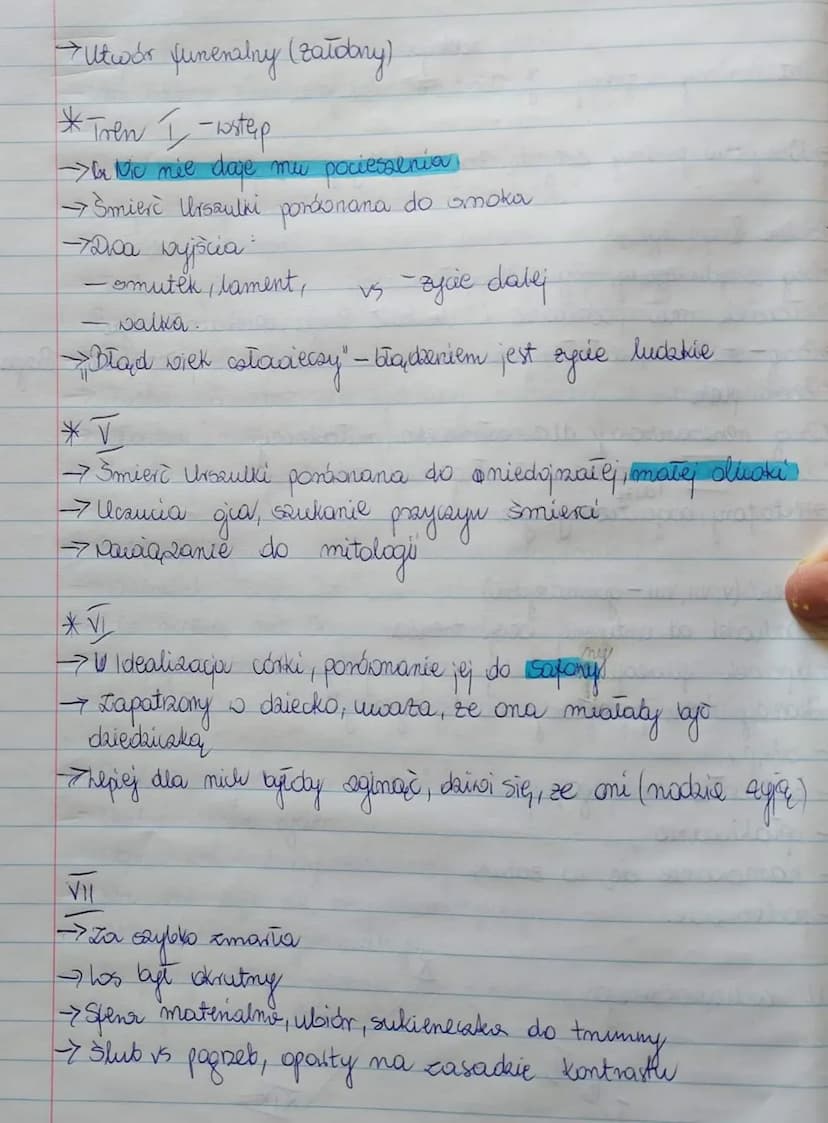 → Utwór funeralny (żałobny)
* Tren I - wstęp
→ Nic nie daje mu pocieszenia
→ Śmierć Urszulki porównana do smoka
→ Dwa wyjścia:
- smutek, lament, vs - życie dalej
- walka.
→ „Błąd wiek człowieczy" - błądzeniem jest życie ludzkie
* V
→ Śmierć Urszulki porównana do niedojrzałej, małej oliwki
→ Uczucia ojca, szukanie przyczyn śmierci
→ Nawiązanie do mitologii
* VI
→ Idealizacja córki, porównanie jej do safony
→ Zapatrzony w dziecko, uważa, że ona miałaby być
dziedziczką
→ Lepiej dla nich byłoby zginąć, dziwi się, że oni (rodzice żyją)
VII
→ Za szybko zmarła
→ Los był okrutny
→ Sfera materialna, ubiór, sukieneczka do trumny
→ Ślub vs pogrzeb, oparty na zasadzie kontrastu